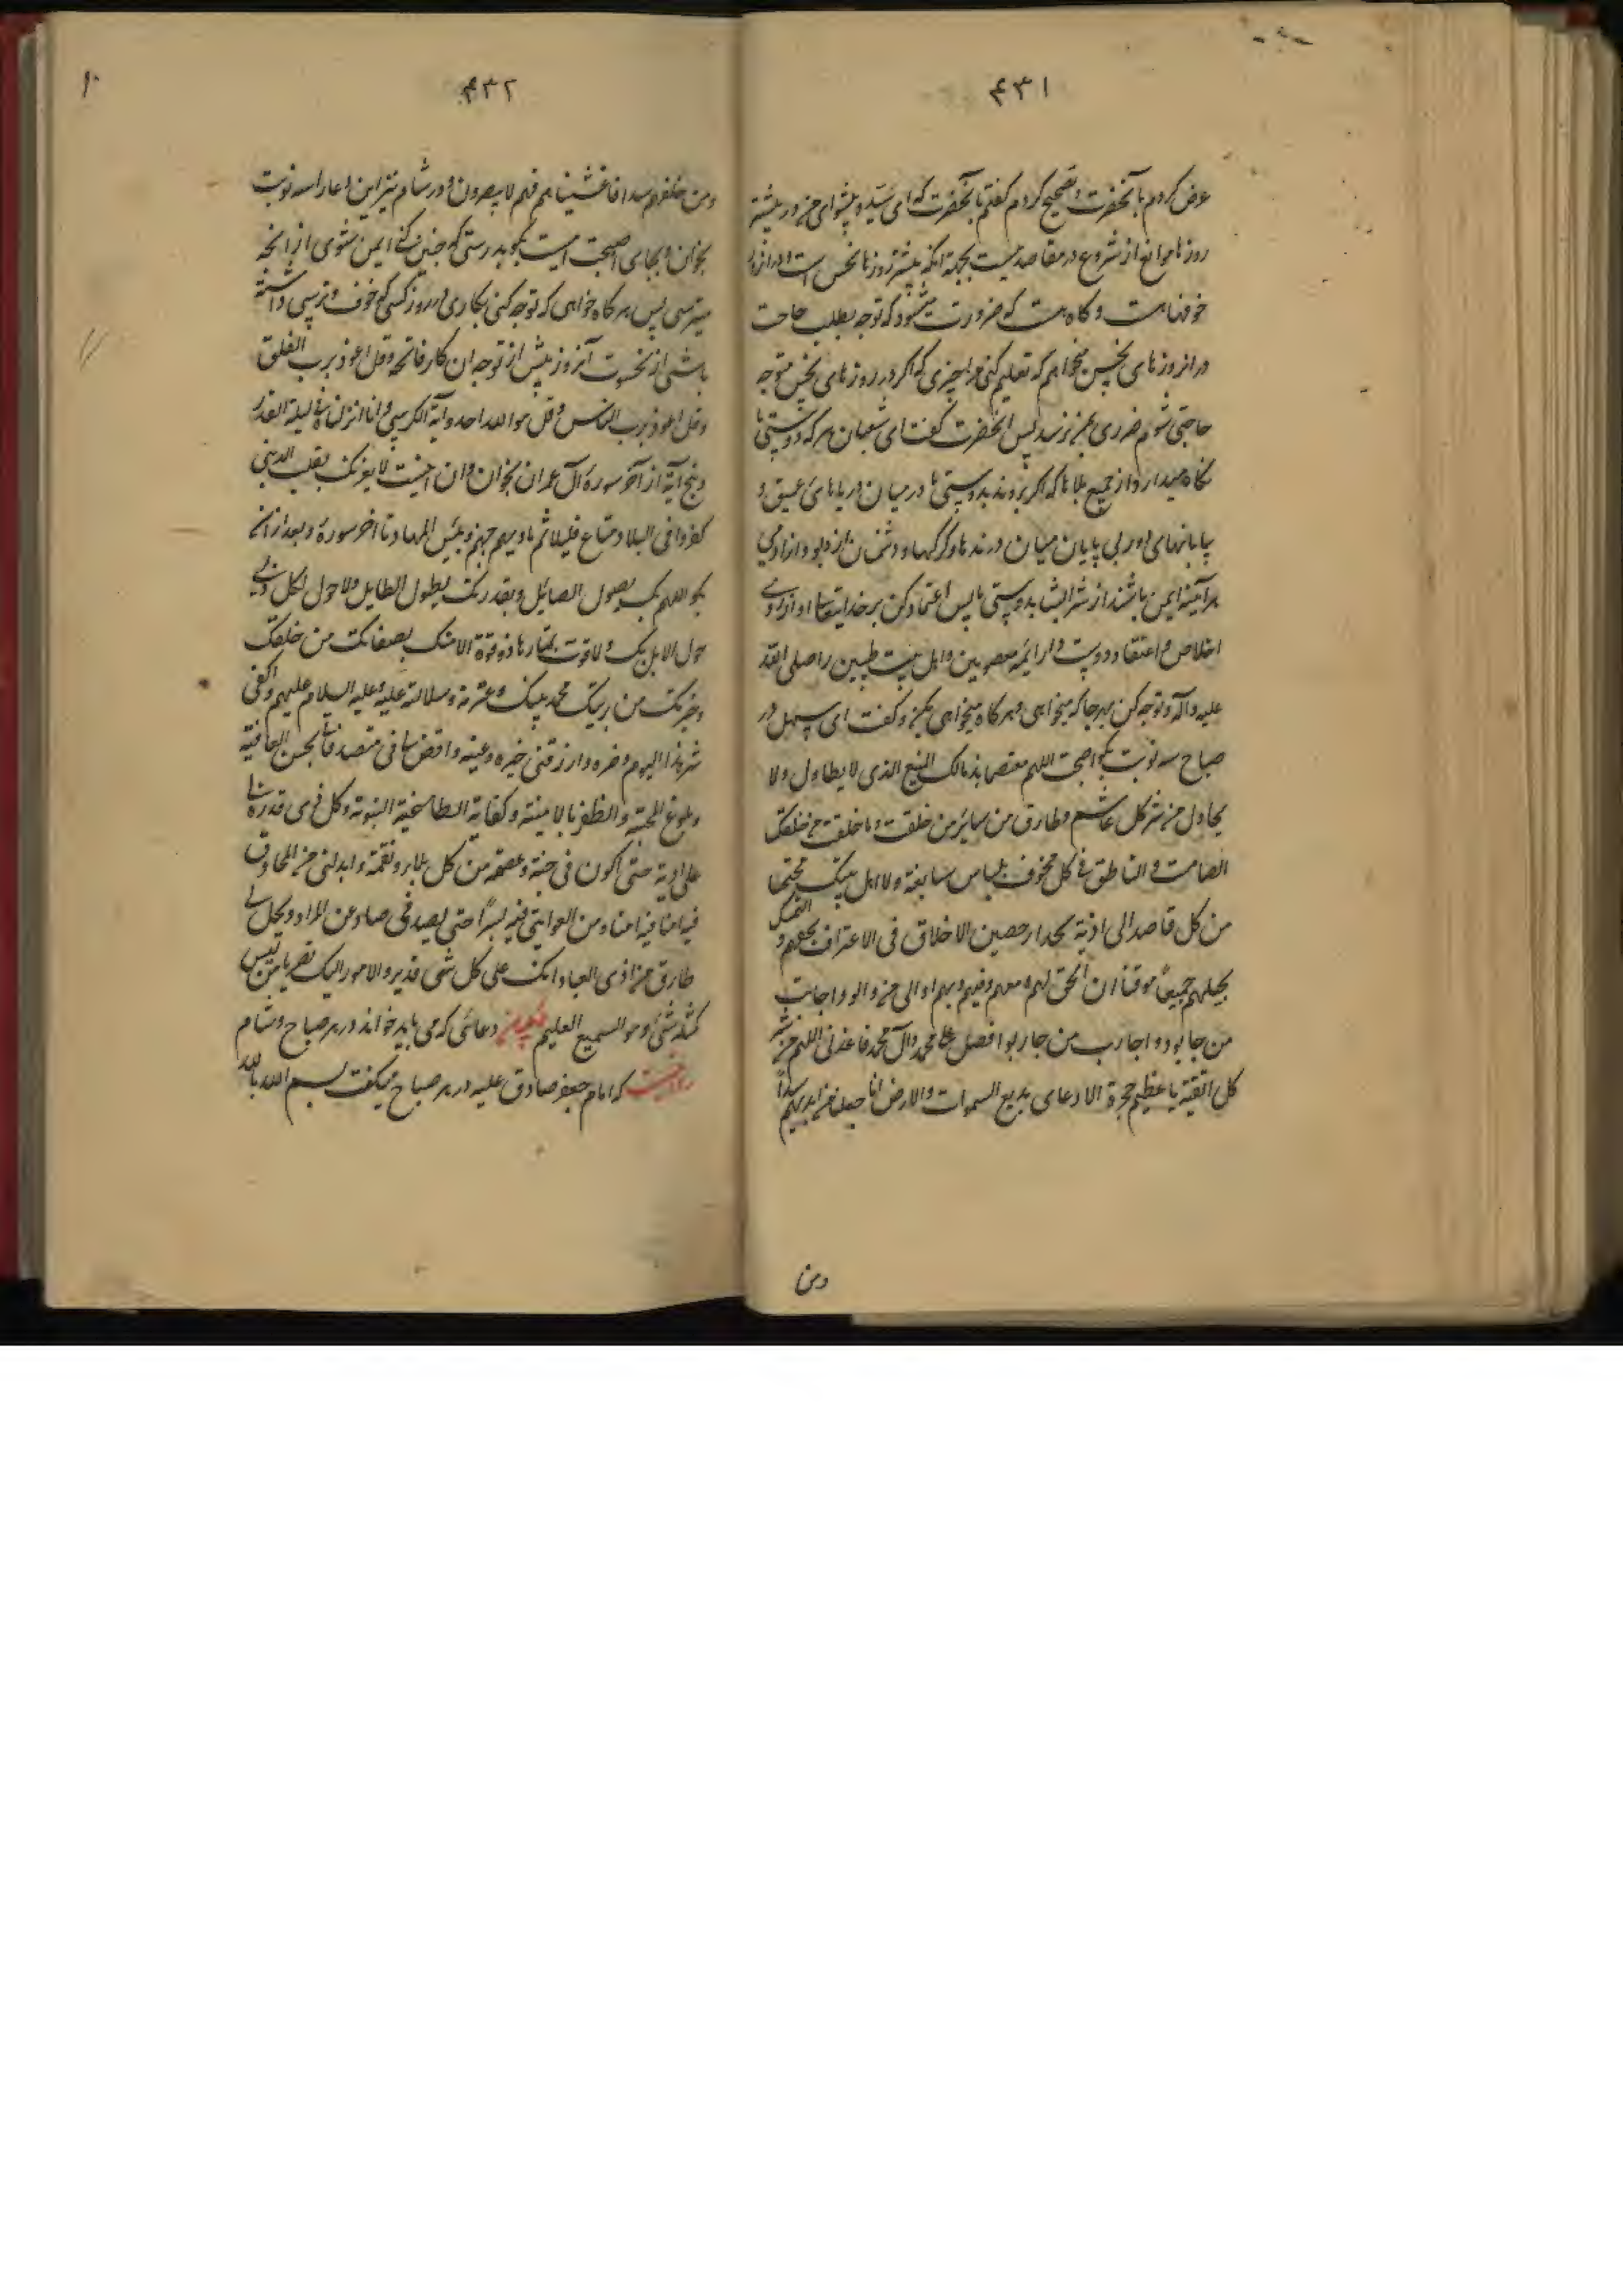 ۴۳۱
عرض کردم بآنحضرت و تصحیح کردم گفتم بآنحضرت که ای سید و پیشوای من در بیشتر
روزها موانع از شروع در مقاصد هست بجهة انکه بیشتر روزها نحس است و در انروز
خوفها هست و کاه هست که ضرورت میشود که توجه بطلب حاجت
در انروزهای نحس میخواهم که تعلیم کنی مرا چیزی که اکر در روزهای نحس متوجه
حاجتی شوم ضرری بمن نرسد پس انحضرت گفت ای سهل بدرستی که دوستی ما
نکاه میدارد از جمیع بلاها که اکر بروند بدوستی ما در میان دریاهای عمیق و
بیابانهای بی پایان میان درندها و کرکها و دشمنان از دیو و آدمی
هر آینه ایمن باشند از شر ایشان بدوستی ما پس اعتماد کن بر خدایتعالی و از روی
اخلاص و اعتقاد دوست دار ائمه معصومین و اهل بیت طیبین را صلی الله
علیه و آله و توجه کن بهر جا که میخواهی و هر کاه میخواهی بکن و گفت ای سهل در
صباح سه نوبت بکو اصبحت اللهم معتصما بذمامک المنیع الذی لا یطاول ولا
یحاول من شر کل غاشم و طارق من سایر من خلقت و ما خلقت من خلقک
الصامت و الناطق فی کل مخوف بلباس سابغة ولاء اهل بیتک محتجبا
من کل قاصد الی اذیة بجدار حصین الاخلاق فی الاعتراف بحقهم و التمسک
بحبلهم جمیعا موقنا ان الحق لهم و معهم و فیهم و بهم اوالی من والوا و اجانب
من جانبوا و احارب من حاربوا فصل علی محمد و آل محمد فاعذنی اللهم من شر
کل اتقیه یا عظیم حجزة الاعادی ببدیع السموات والارض انا جعلنا من بین ایدیهم سدا
ومن
۴۳۲
ومن خلفهم سدا فاغشیناهم فهم لا یبصرون و در شام نیز این دعا را سه نوبت
بخوان و بجای اصبحت امسیت بکو بدرستی که چنین کنی ایمن شوی از انچه
میترسی پس هر کاه خواهی که توجه کنی بکاری در روز کسی که خوف و ترسی داشته
باشی از نحوست آنروز پیش از توجه ان کار فاتحه و قل اعوذ برب الفلق
و قل اعوذ برب الناس و قل هو الله احد و آیة الکرسی و انا انزلناه فی لیلة القدر
و پنج آیة از آخر سورۀ آل عمران بخوان و ان اینست لا یغرنک تقلب الذین
کفروا فی البلاد متاع قلیلا ثم ماویهم جهنم و بئس المهاد تا اخر سورۀ و بعد از ان
بکو اللهم بک یصول الصائل و بقدرتک یطول الطایل ولا حول لکل ذی
حول الا بک ولا قوت یمتارها ذو قوة الا منک بصفاتک من خلقک
و خیرتک من بریتک محمد نبیک و عترته و سلالته علیه و علیهم السلام علیهم و اکفنی
شر هذا الیوم و ضره و ارزقنی خیره و یمنه و اقض لی فی متصرفاتی بحسن العافیة
و بلوغ المحبة و الظفر بالامنیة و کفایة الطاغیة المغویة و کل ذی قدرة لی
علی اذیة حتی اکون فی جنة و عصمة من کل بلاء و نقمة و ابدلنی من المخاوف
فیه امنا و من العوایق فیه یسرا حتی لا یصدنی صاد عن المراد و لا یحل بی
طارق من اذی العباد انک علی کل شی قدیر و الامور الیک تصیر یا من لیس
کمثله شیء و هو السمیع العلیم دعائی که می باید خواند در هر صباح و شام
روایتست که امام جعفر صادق علیه در هر صباح میکفت بسم الله بالله